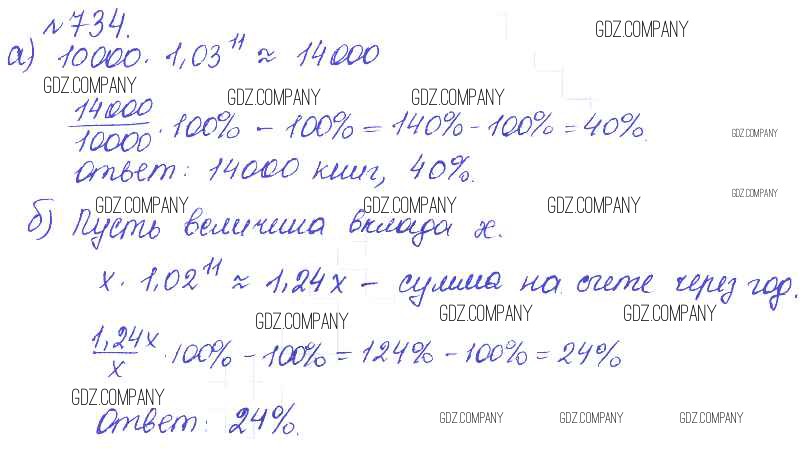 №734.
GDZ.COMPANY
а) 10000 · 1,03^11 ≈ 14000
GDZ.COMPANY
GDZ.COMPANY GDZ.COMPANY
14000/10000 · 100% - 100% = 140% - 100% = 40%.
GDZ.COMPANY
Ответ: 14000 книг, 40%.
GDZ.COMPANY
GDZ.COMPANY GDZ.COMPANY GDZ.COMPANY
б) Пусть величина вклада x.
x · 1,02^11 ≈ 1,24x - сумма на счете через год.
GDZ.COMPANY GDZ.COMPANY GDZ.COMPANY
1,24x/x · 100% - 100% = 124% - 100% = 24%
GDZ.COMPANY
Ответ: 24%.
GDZ.COMPANY GDZ.COMPANY GDZ.COMPANY